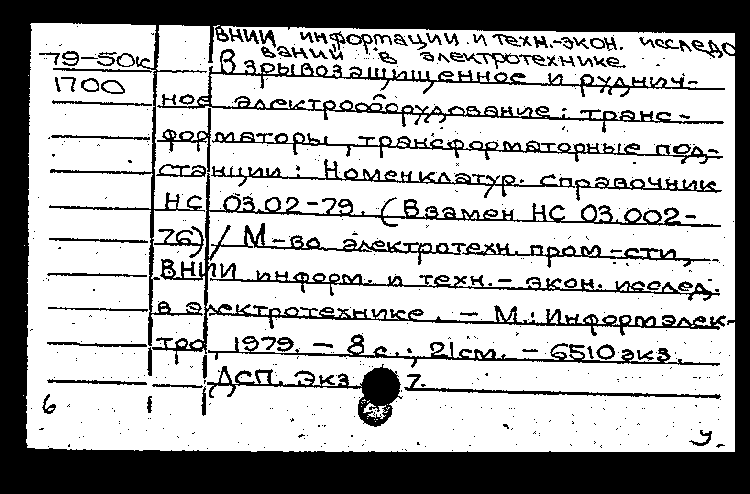 ВНИИ информации и техн.-экон. исследо
ваний в электротехнике.
79-50к
Взрывозащищенное и руднич-
1700
ное электрооборудование: транс-
форматоры, трансформаторные под-
станции: Номенклатур. справочник
НС 03.02-79. (Взамен НС 03.002-
76) / М-во электротехн. пром-сти,
ВНИИ информ. и техн.- экон. исслед.
в электротехнике. - М.: Информэлек-
тро, 1979. - 8 с.; 21см. - 6510 экз.
ДСП. Экз 7.
6
У.